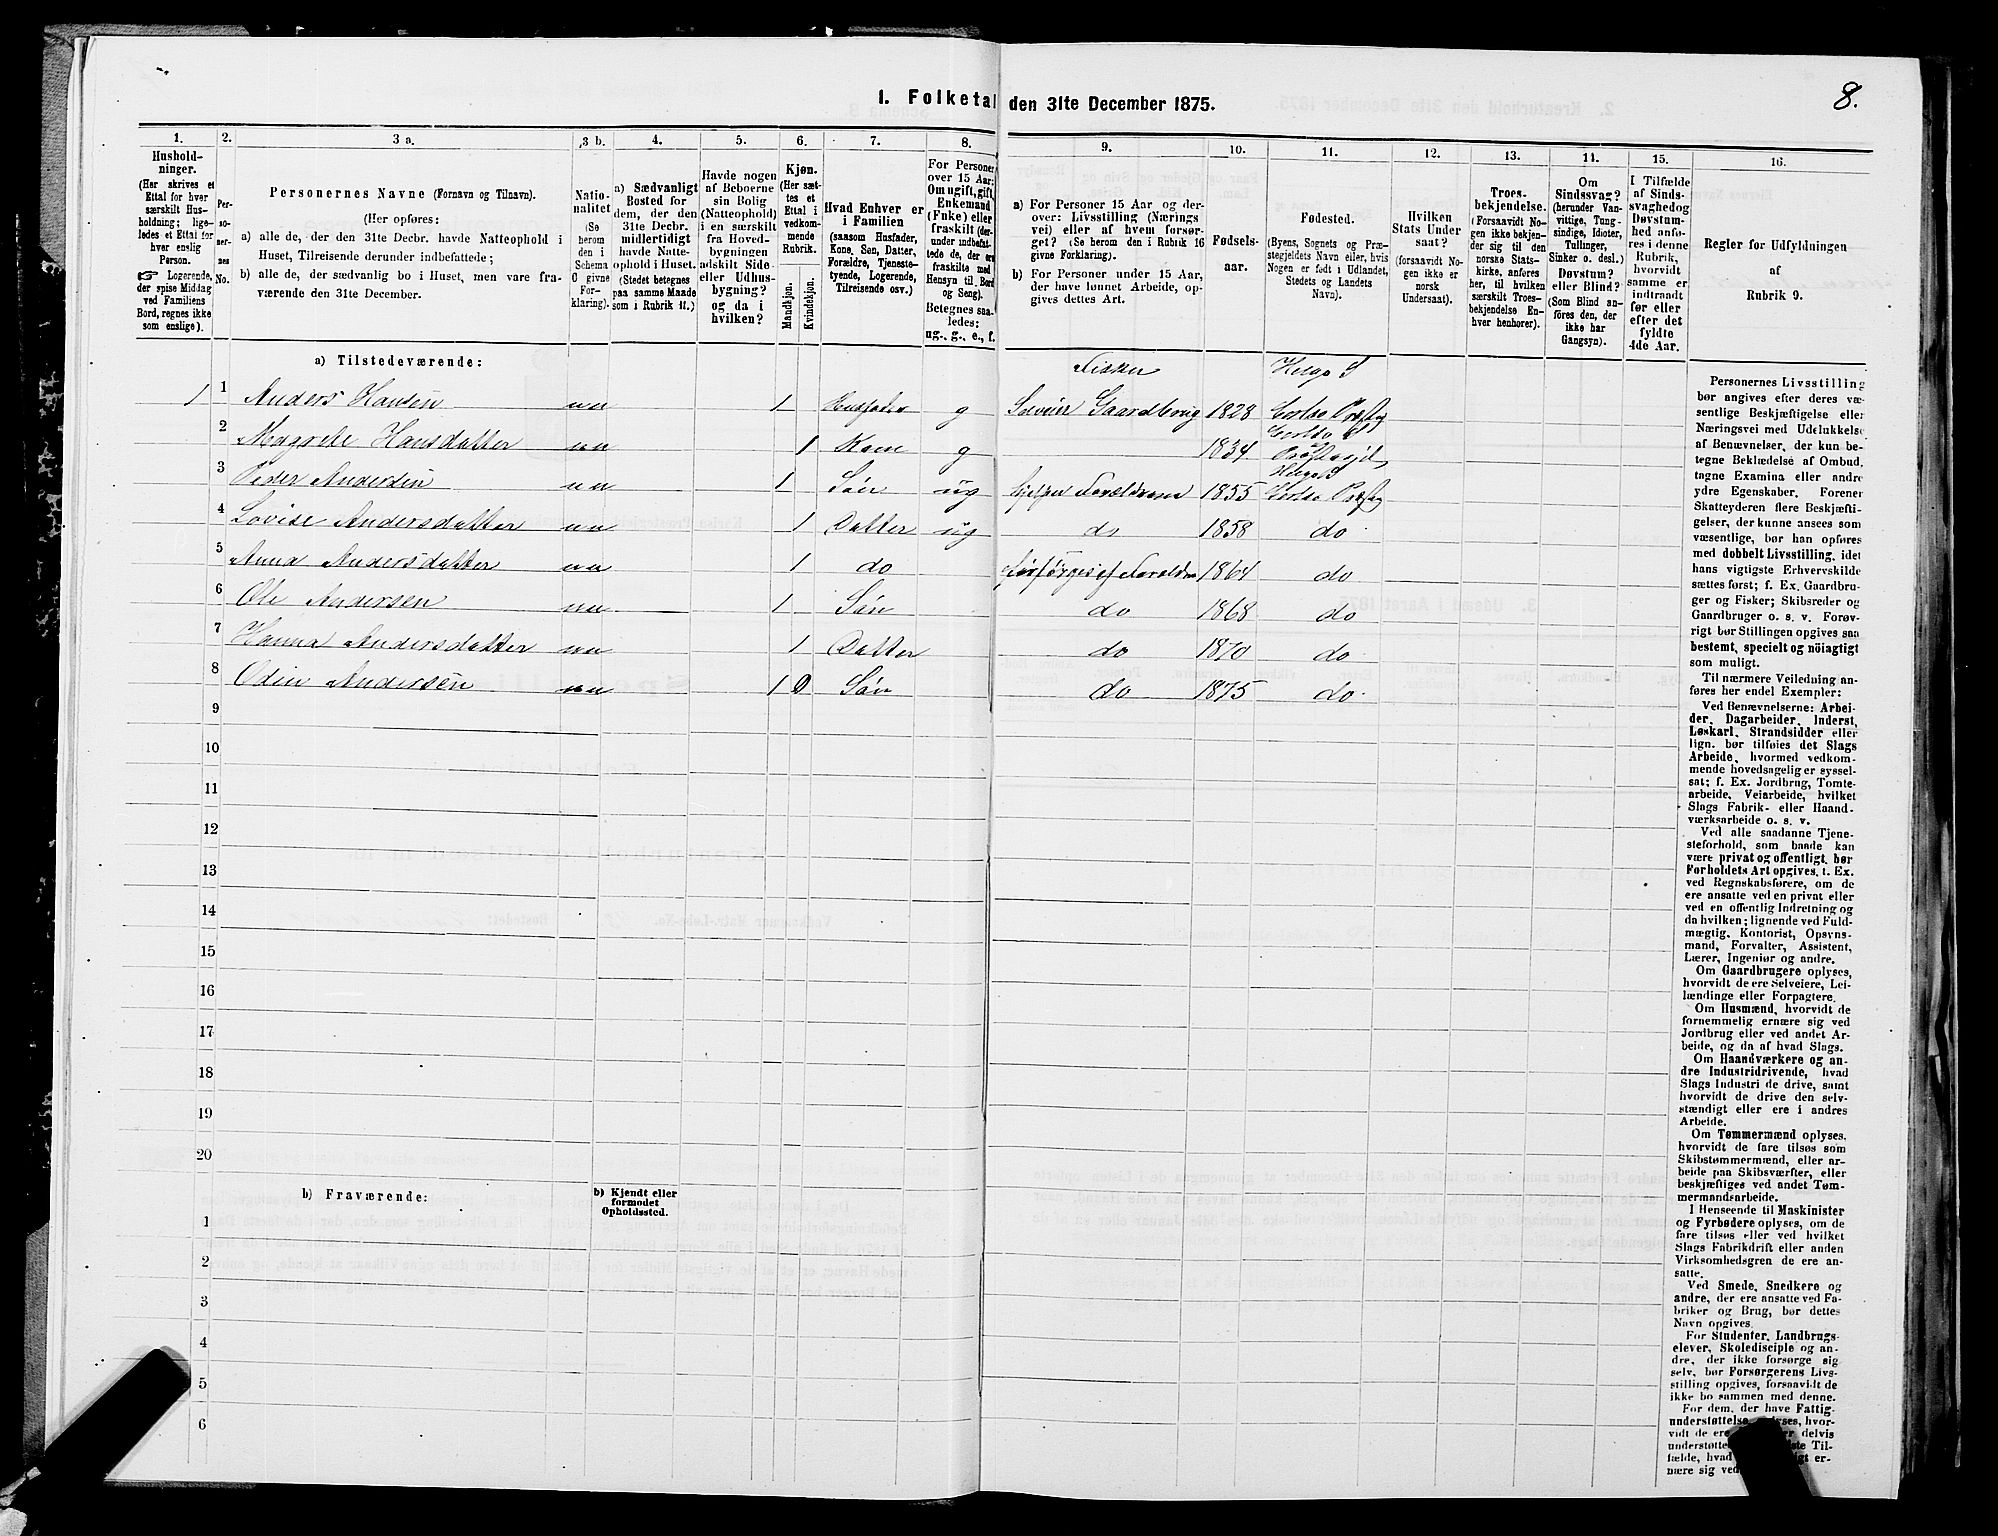 8.
1. Folketal den 31te December 1875.
1. 2. 3 a. 3 b. 4. 5. 6. 7. 8. 9. 10. 11. 12. 13. 14. 15. 16.
Hushold-
ninger.
(Her skrives et
Ettal for hver
særskilt Hus-
holdning; lige-
ledes et Ettal for
hver enslig
Person.
☞ Logerende,
der spise Middag
ved Familiens
Bord, regnes ikke
som enslige).
Per-
so-
ner-
nes
No.
Personernes Navne (Fornavn og Tilnavn).
(Her opføres:
a) alle de, der den 31te Decbr. havde Natteophold i
Huset, Tilreisende derunder indbefattede;
b) alle de, der sædvanlig bo i Huset, men vare fra-
værende den 31te December.
Natio-
nalitet
(Se
herom
den i
Schema
O givne
For-
klaring).
a) Sædvanligt
Bosted for
dem, der den
31te Decbr.
midlertidigt
havde Natte-
ophold i Huset.
(Stedet betegnes
paa samme Maade
som i Rubrik 11.)
Havde nogen
af Beboerne
sin Bolig
(Natteophold)
i en særskilt
fra Hoved-
bygningen
adskilt Side-
eller Udhus-
bygning?
og da i
hvilken?
Kjøn.
(Her sæt-
tes et
Ettal i
vedkom-
mende
Rubrik.
Mandkjøn.
Kvindekjøn.
Hvad Enhver er
i Familien
(saasom Husfader,
Kone, Søn, Datter,
Forældre, Tjeneste-
tyende, Logerende,
Tilreisende osv.)
For Personer
over 15 Aar:
Om ugift, gift,
Enkemand
(Enke) eller
fraskilt (der-
under indbefat-
tede de, der ere
fraskilte med
Hensyn til Bord
og Seng).
Betegnes saa-
ledes:
ug., g., e., f.
a) For Personer 15 Aar og der-
over: Livsstilling (Nærings
vei) eller af hvem forsør-
get? (Se herom den i Rubrik 16
givne Forklaring).
b) For Personer under 15 Aar,
der have lønnet Arbeide, op-
gives dettes Art.
Fødsels-
aar.
Fødested.
(Byens, Sognets og Præ-
stegjeldets Navn eller, hvis
Nogen er født i Udlandet,
Stedets og Landets
Navn).
Hvilken
Stats Under
saat?
(forsaavidt No-
gen ikke er
norsk
Undersaat).
Troes-
bekjendelse.
(Forsaavidt No-
gen ikke bekjen-
der sig til den
norske Stats-
kirke, anføres
her, til hvilken
særskilt Troes-
bekjendelse En-
hver henhører).
Om
Sindssvag?
(herunder Van-
vittige, Tung-
sindige, Idioter,
Tullinger,
Sinker o. desl.)
Døvstum?
eller Blind?
(Som Blind an-
føres den, der
ikke har
Gangsyn).
I Tilfælde
af Sinds-
svaghed og
Døvstum-
hed anfø-
res i denne
Rubrik,
hvorvidt
samme er
indtraadt
før eller
efter det
fyldte
4de Aar.
Regler for Udfyldningen
af
Rubrik 9.
a) Tilstedeværende:
Fisker Helgø S
1 1 Anders Hansen nn 1 Husfader g Selveier Gaardbrug 1828 Præstg
2 Magrete Hansdatter nn 1 Kone g 1834
3 Peder Andersen nn 1 Søn ug hjelper Forældrene 1855 Præstg
4 Lovise Andersdatter nn 1 Datter ug do 1858 do
5 Anna Andersdatter nn 1 do forsørges af Forældre 1864 do
6 Ole Andersen nn 1 Søn do 1868 do
7 Hanna Andersdatter nn 1 Datter do 1870 do
8 Odin Andersen nn 1 0 Søn do 1875 do
9
10
11
12
13
14
15
16
17
18
19
20
b) Fraværende:
b) Kjendt eller
formodet
Opholdssted.
1
2
3
4
5
6
Personernes Livsstilling
bør angives efter deres væ-
sentlige Beskjæftigelse eller
Næringsvei med Udelukkelse
af Benævnelser, der kun be-
tegne Beklædelse af Ombud,
tagne Examina eller andre
ydre Egenskaber. Forener
Skatteyderen flere Beskjæfti-
gelser, der kunne ansees som
væsentlige, bør han opføres
med dobbelt Livsstilling, idet
hans vigtigste Erhvervskilde
sættes først; f. Ex. Gaardbru-
ger og Fisker; Skibsreder og
Gaardbruger o. s. v. Forøv-
rigt bør Stillingen opgives saa
bestemt, specielt og nøiagtigt
som muligt.
Til nærmere Veiledning an-
føres her endel Exempler:
Ved Benævnelserne: Arbei-
der, Dagarbeider, Inderst,
Løskarl, Strandsidder eller
lign. bør tilføies det Slags
Arbeide, hvormed vedkom-
mende hovedsagelig er syssel-
sat; f. Ex. Jordbrug, Tomte-
arbeide, Veiarbeide, hvilket
Slags Fabrik- eller Haand-
værksarbeide o. s. v.
Ved alle saadanne Tjene-
steforhold, som baade kan
være privat og offentligt, bør
Forholdets Art opgives, f. Ex.
ved Regnskabsførere, om de
ere ansatte ved en privat eller
ved en offentlig Indretning og
da hvilken; lignende ved Fuld-
mægtig, Kontorist, Opsyns-
mand, Forvalter, Assistent,
Lærer, Ingeniør og andre.
Om Gaardbrugere oplyses,
hvorvidt de ere Selveiere, Lei-
lændinge eller Forpagtere.
Om Husmænd, hvorvidt de
fornemmelig ernære sig ved
Jordbrug eller ved andet Ar-
beide, og da af hvad Slags.
Om Haandværkere og an-
dre Industridrivende, hvad
Slags Industri de drive, samt
hvorvidt de drive den selv-
stændigt eller ere i andres
Arbeide.
Om Tømmermænd oplyses,
hvorvidt de fare tilsøs som
Skibstømmermænd, eller ar-
beide paa Skibsværfter, eller
beskjæftiges ved andet Tøm-
mermandsarbeide.
I Henseende til Maskinister
og Fyrbødere oplyses, om de
fare tilsøs eller ved hvilket
Slags Fabrikdrift eller anden
Virksomhedsgren de ere an-
satte.
Ved Smede, Snedkere og
andre, der ere ansatte ved Fa-
briker og Brug, bør dettes
Navn opgives.
For Studenter, Landbrugs-
elever, Skoledisciple og an-
dre, der ikke forsørge sig
selv, bør Forsørgerens Livs-
stilling opgives, forsaavidt de
ikke bo sammen med denne.
For dem, der have Fattig-
understøttelse, hvor-
vidt de ere delvis
understøtte Til-
fælde, hvad er-
nære sig ved